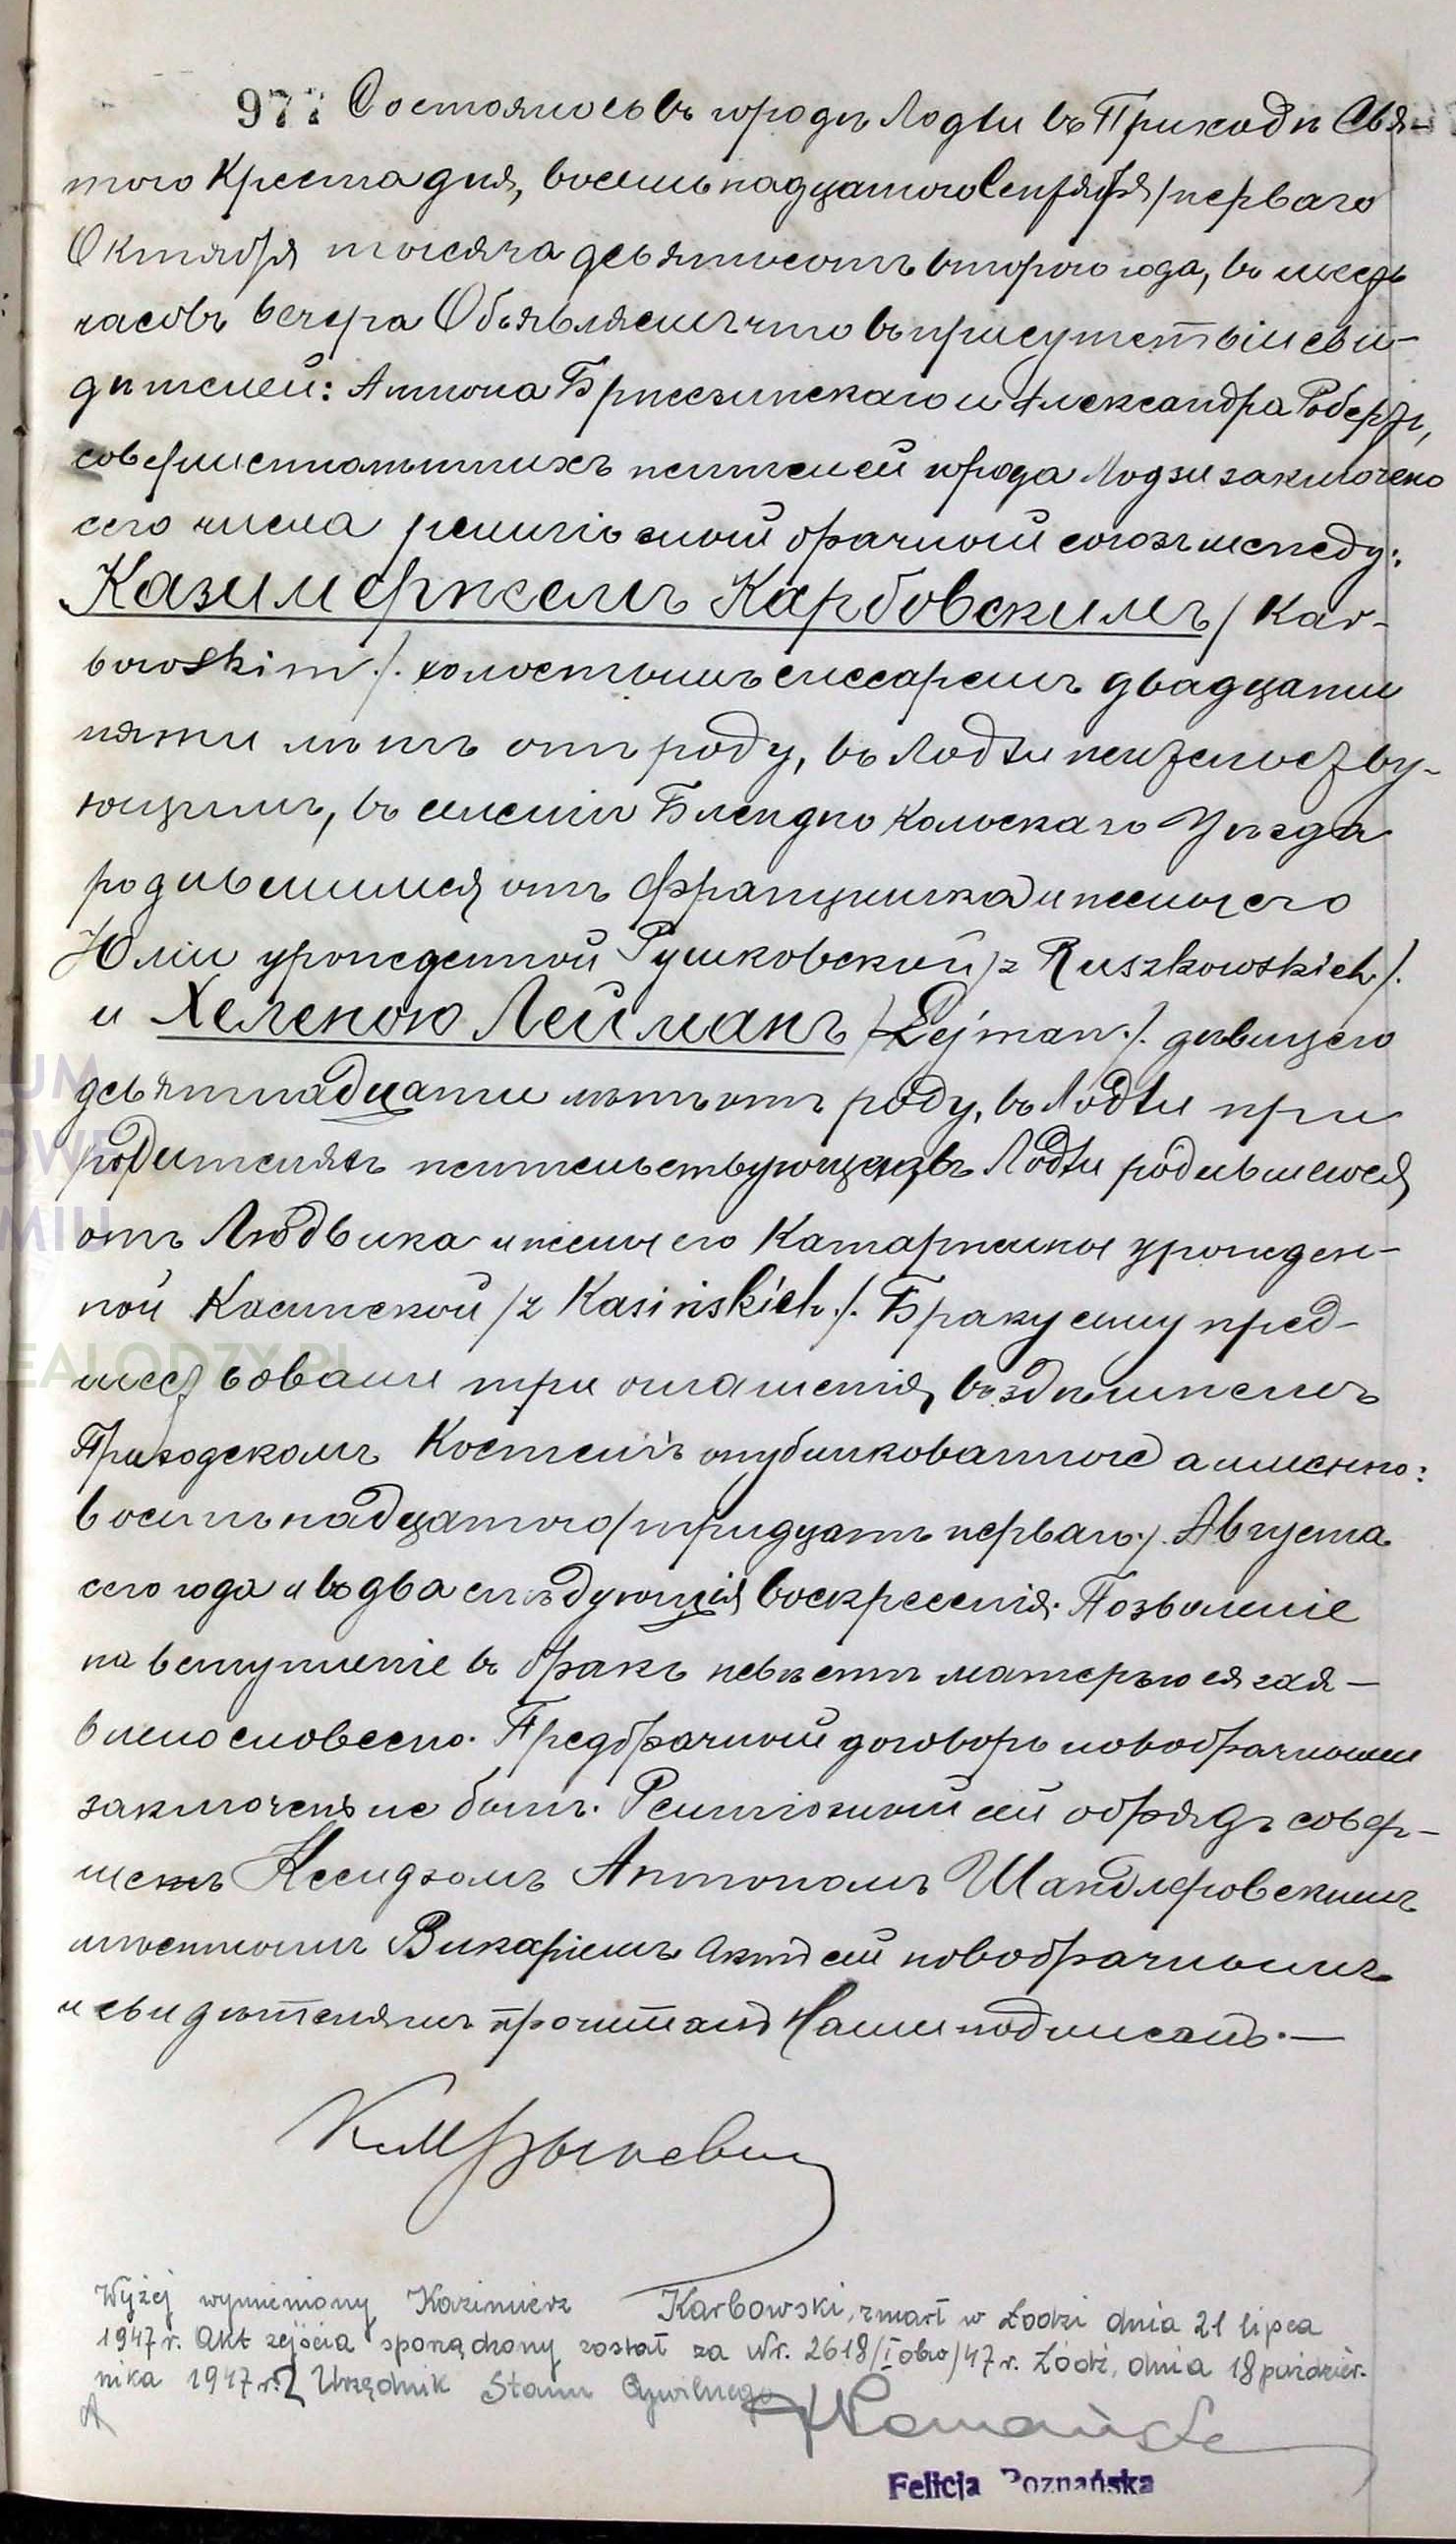 977 Состоялось въ городѣ Лодзи въ Приходѣ Свя-
того Креста дня, восемьнадцатого Сентября/перваго
Октября тысяча девятьсотъ второго года, въ шесть
часовъ вечера Объявляемъ что въ присутствіи сви-
дѣтелей: Антона Бржезинскаго и Александра
совершеннолѣтнихъ жителей города Лодзи заключенъ
сего числа религіозный брачный союзъ между:
Казимержемъ Карбовскимъ / Kar-
bowskim ./. холостымъ слесаремъ двадцати
пяти лѣтъ отъ роду, въ Лодзи жительству-
ющимъ, въ селеніи Кольскаго Уѣзда
родившимся отъ Францишка и жены его
Юліи урожденной Рушковской / z Ruszkowskich /.
и Хеленою Лейманъ / Lejman ./. дѣвицею
девятнадцати лѣтъ отъ роду, въ Лодзи при
родителяхъ жительствующею въ Лодзи родившеюся
отъ Людвика и жены его Катаржины урожден-
ной Касинской / z Kasińskich ./. Браку сему пред-
шествовали три оглашенія, въ здѣшнемъ
Приходскомъ Костелѣ опубликованные а именно:
восемьнадцатого / тридцать перваго ./. Августа
сего года и въ два слѣдующія воскресенія. Позволеніе
на вступленіе въ бракъ невѣстѣ матерью ея зая-
влено словесно. Предбрачный договоръ новобрачными
заключенъ не былъ. Религіозный сей обрядъ совер-
шенъ Ксендзомъ Антономъ Шандлеровскимъ
мѣстнымъ Викаріемъ Актъ сей новобрачнымъ
и свидѣтелямъ прочитанъ Нами подписанъ. —
Wyżej wymieniony Kazimierz Karbowski, zmarł w Łodzi dnia 21 lipca
1947 r. Akt zejścia sporządzony został za Nr. 2618/I obw/47 r. Łódź, dnia 18 paździer-
nika 1947 r. Urzędnik Stanu Cywilnego
Felicja Poznańska
EALODZY.PL